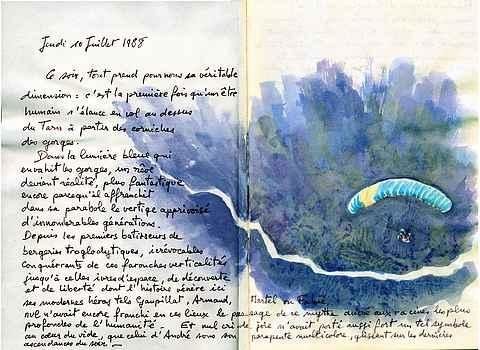 Jeudi 10 Juillet 1988
Ce soir, tout prend pour nous sa véritable
dimension : c'est la première fois qu'un être
humain s'élance en vol au dessus
du Tarn à partir des corniches
des gorges.
Dans la lumière bleue qui
envahit les gorges, un rêve
devient réalité, plus fantastique
encore parce qu'il affranchit
dans sa parabole le vertige apprivoisé
d'innombrables générations.
Depuis les premiers batisseurs de
bergeries troglodytiques, irrévocables
conquérants de ces farouches verticalités
jusqu'à celles ivres d'espace, de découverte
et de liberté dont l'histoire vénère ici
ses modernes héros tels Gaupillat, Armand, Martel ou Fabié,
nul n'avait encore franchi en ces lieux le passage de ce mythe ancré aux racines les plus
profondes de l'humanité. Et nul cri de joie n'avait porté aussi fort un tel symbole
au cœur du vide, que celui d'André sous son parapente multicolore, glissant sur les dernières
ascendances du soir.